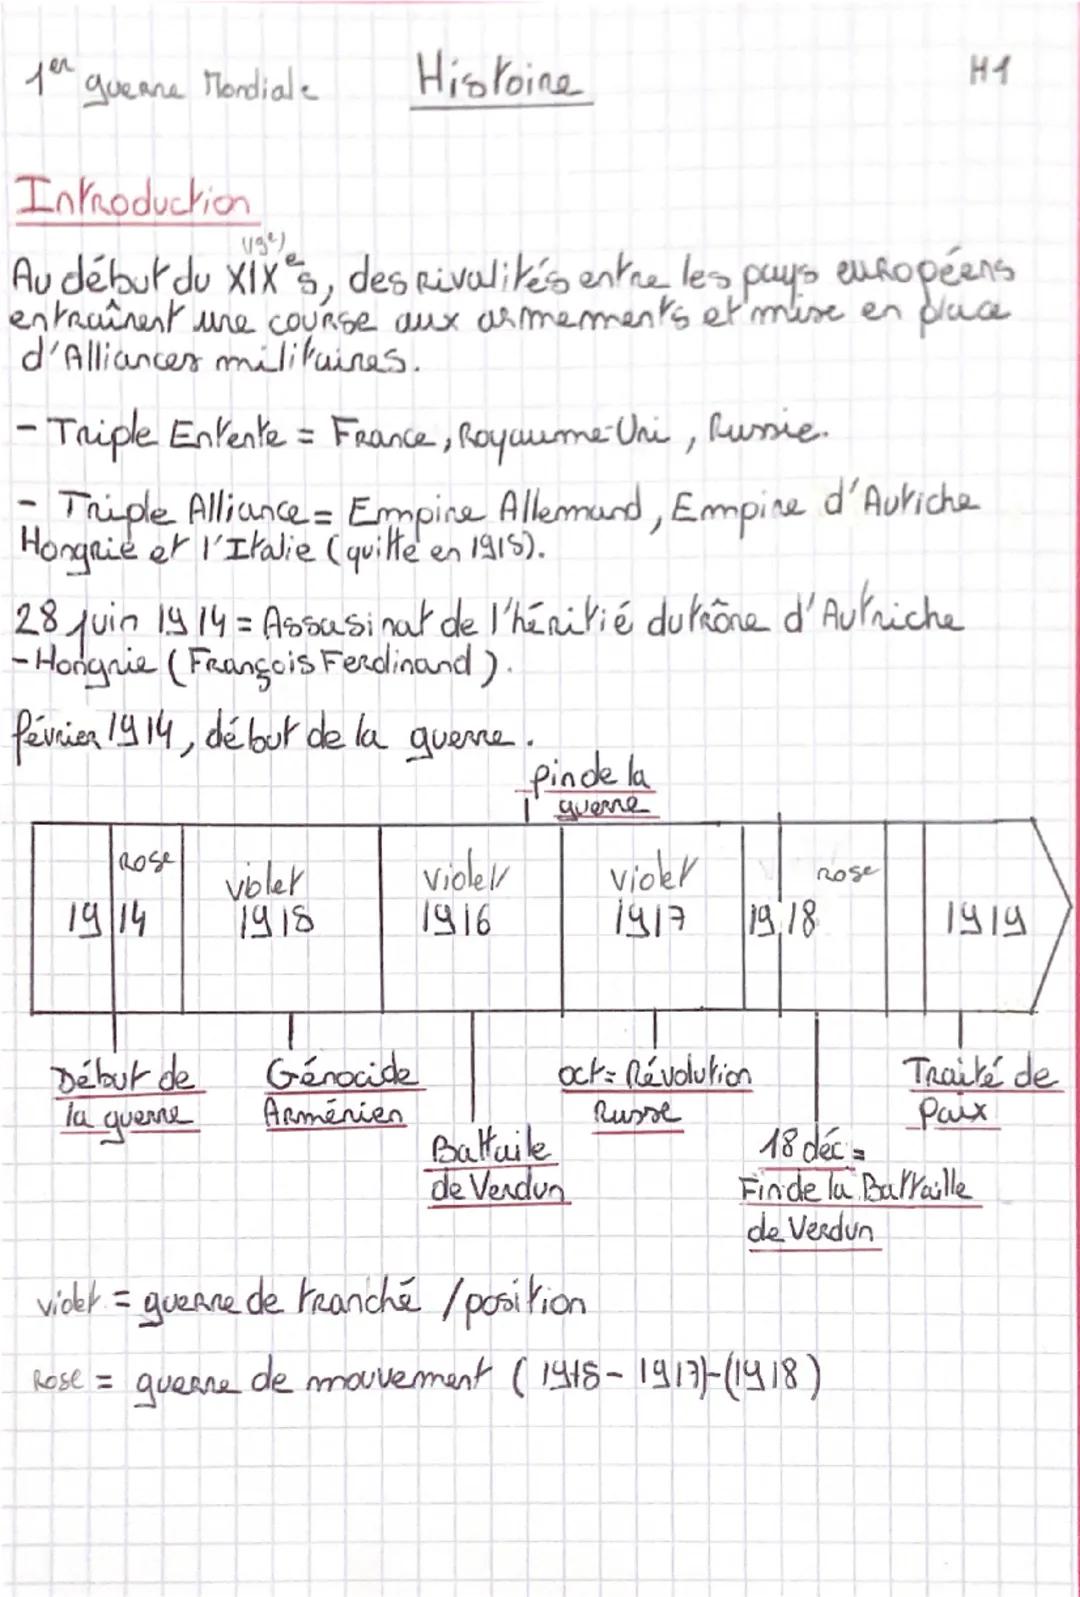 1er guerre Mondiale
Histoire
H1
Introduction
(19e)
Au début du XIXe s, des rivalités entre les pays européens
entraînent une course aux armements et mise en place
d'Alliances militaires.
- Triple Entente = France, Royaume-Uni, Russie.
- Triple Alliance = Empire Allemand, Empire d'Autiche
Hongrie et l'Italie (quitte en 1915).
28 juin 1914 = Assasinat de l'héritié du trône d'Autriche
-Hongrie (François Ferdinand).
février 1914, début de la guerre.
fin de la
guerre
rose
violet
violet
violet
rose
1914
1915
1916
1917
1918
1919
Début de
la guerre
Génocide
Arménien
Battaile
de Verdun
oct = Révolution
Russe
18 déc =
Fin de la Battaille
de Verdun
Traité de
Paix
violet = guerre de tranché / position
Rose = guerre de mouvement (1915 - 1917)-(1918)